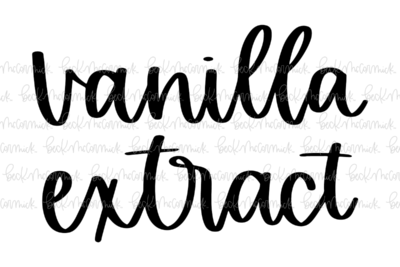 vanilla
extract